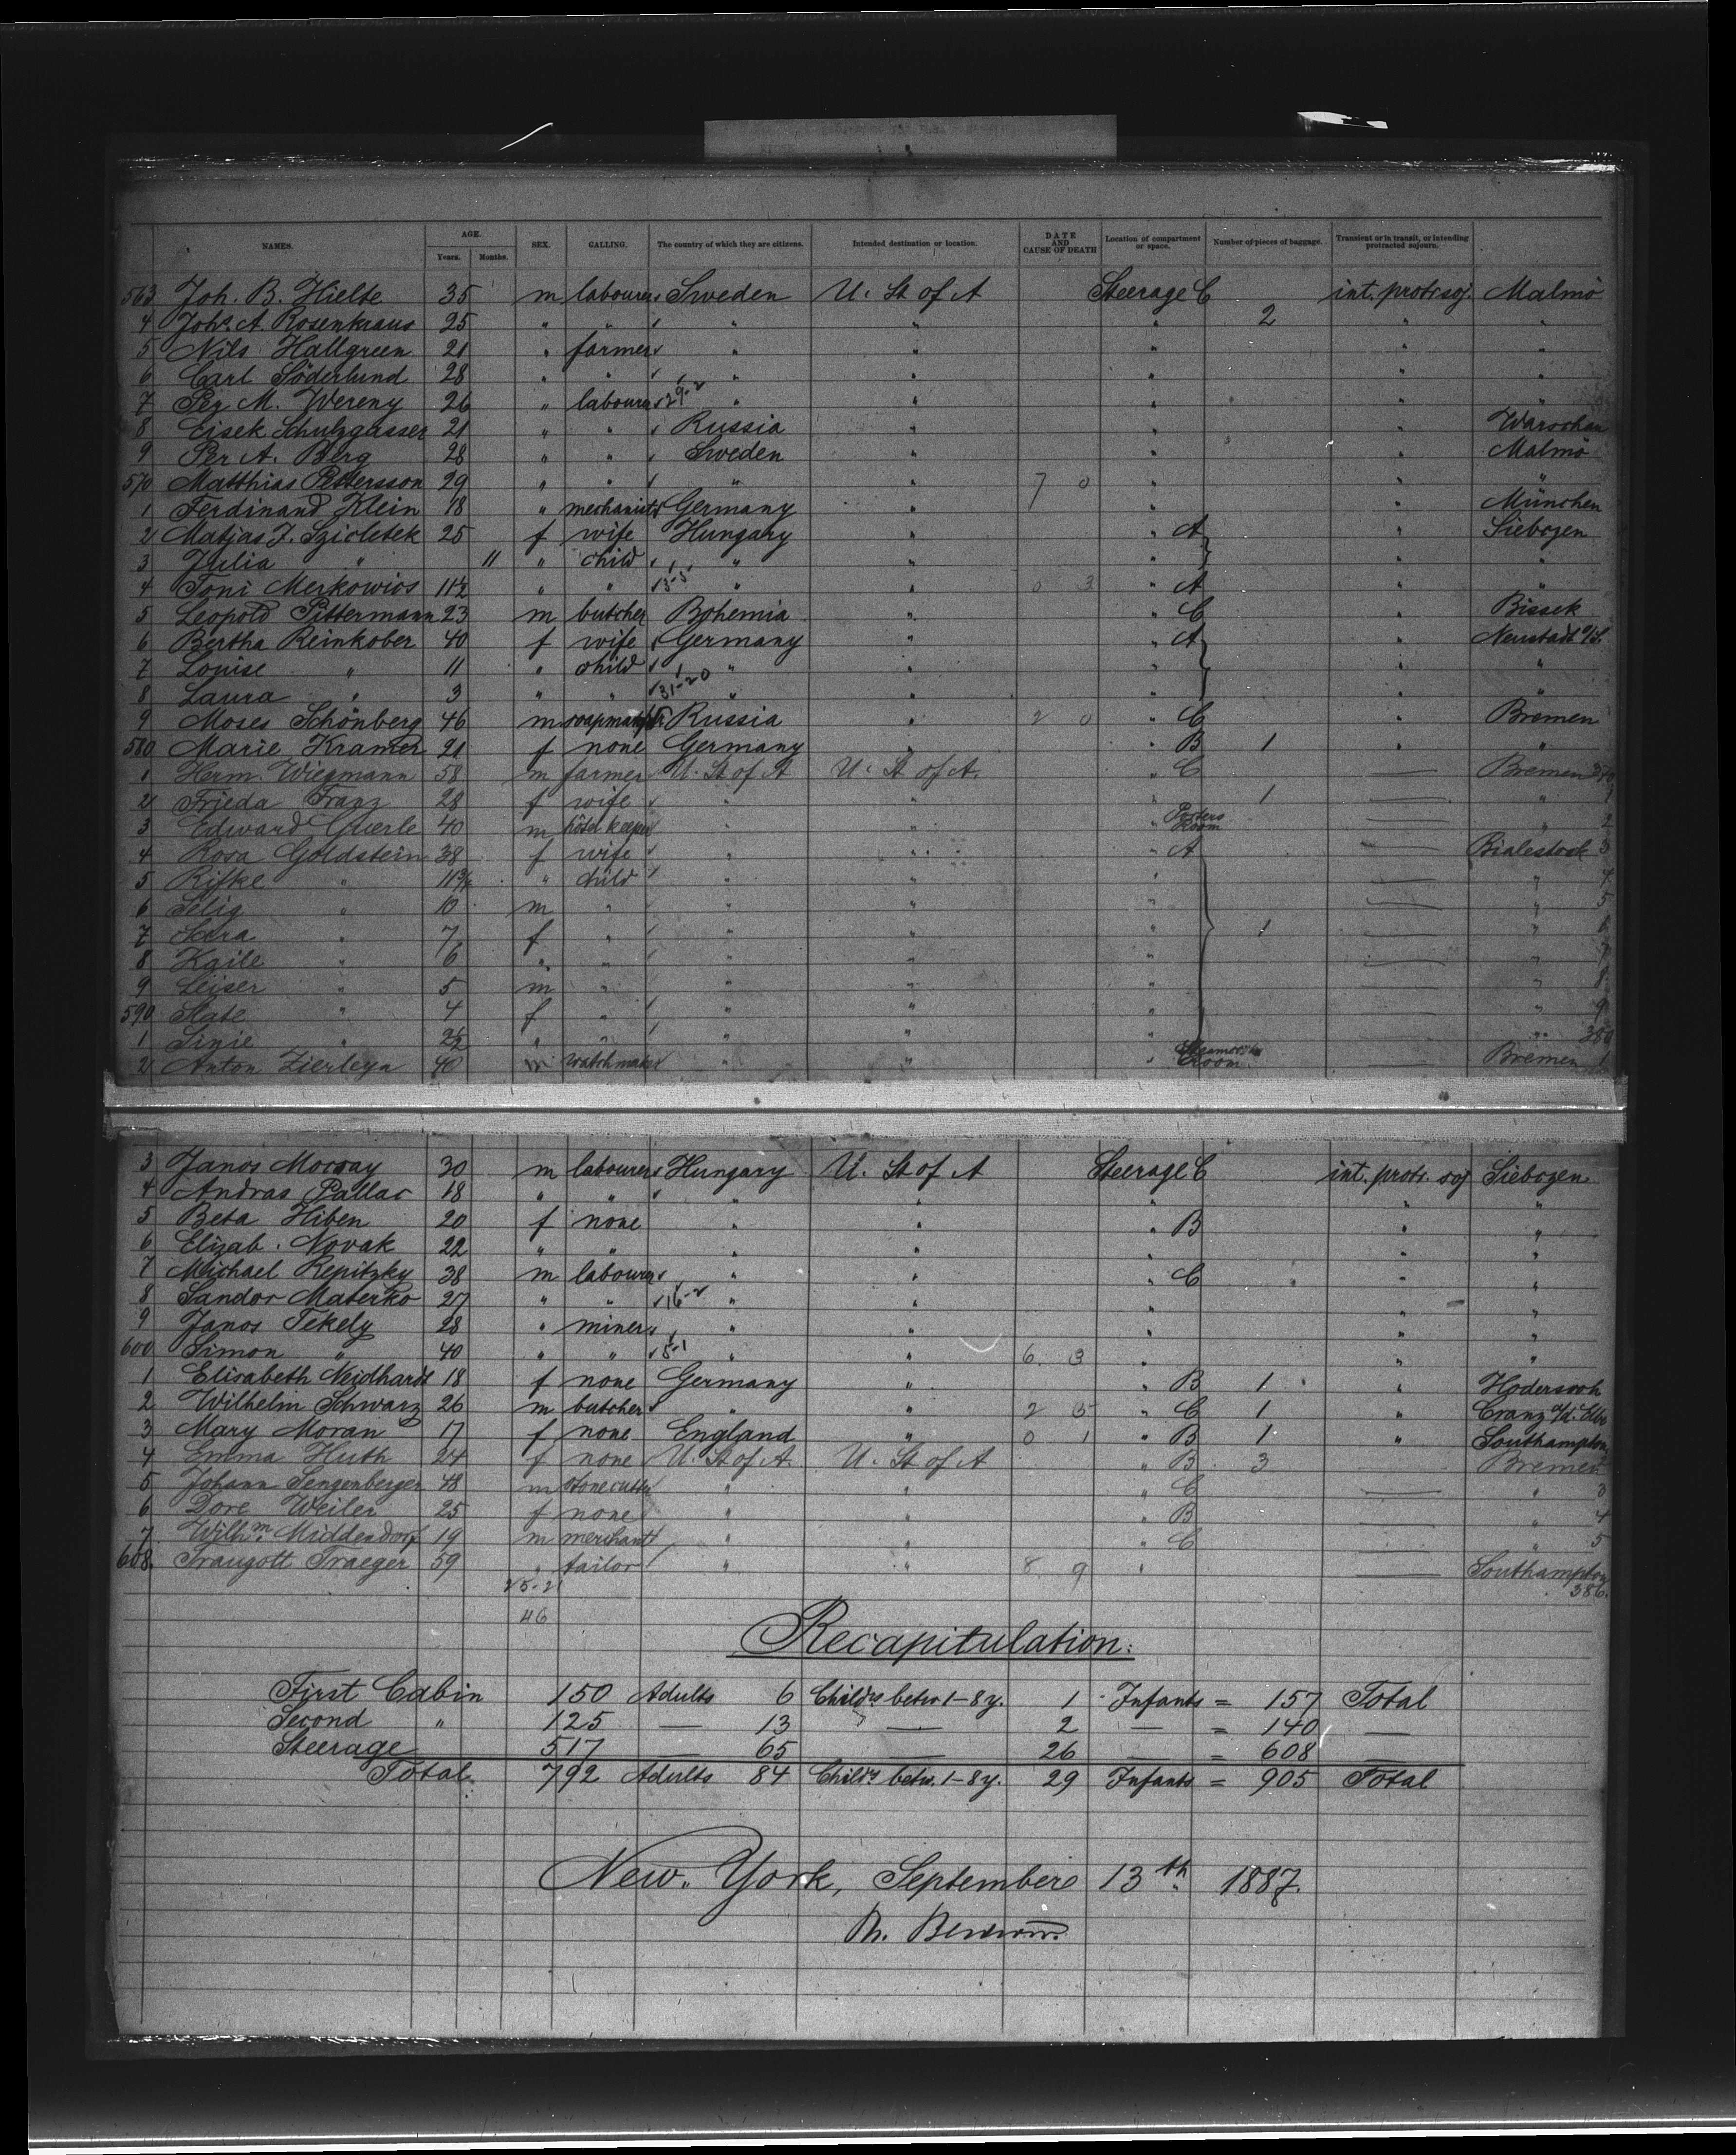 NAMES. AGE. Years. Months. SEX. CALLING. The country of which they are citizens. Intended destination or location. DATE AND CAUSE OF DEATH Location of compartment or space. Number of pieces of baggage. Transient or in transit, or intending protracted sojourn.
563 Joh. B. Hielte 35 m labourer Sweden U. St of A Steerage C int. protr. soj. Malmö
4 Johs A. Rosenkraus 25 " " " " " 2 " "
5 Nils Hallgreen 21 " farmer " " " " "
6 Carl Söderlund 28 " " " " " " "
7 Per M. Wereny 26 " labourer 29-2 " " " " "
8 Eisek Schulzgasser 21 " " Russia " " " Warschau
9 Per A. Berg 28 " " Sweden " " " Malmö
570 Matthias Pettersson 29 " " " " 7 0 " " "
1 Ferdinand Klein 18 " mechanist Germany " " " München
2 Matjas J. Szicletek 25 f wife Hungary " " A " Siebozen
3 Julia " 11 " child " " " " "
4 Toni Merkowics 11½ " " 3-5 " " 0 3 " A " "
5 Leopold Pittermann 23 m butcher Bohemia " " C " Bissek
6 Bertha Reinkober 40 f wife Germany " " A " Neustadt a/S.
7 Louise " 11 " child " " " " "
8 Laura " 3 " " 31-20 " " " " "
9 Moses Schönberg 46 m soapmaker Russia " 2 0 " C " Bremen
580 Marie Kramer 21 f none Germany " " B 1 " "
1 Herm. Wiegmann 58 m farmer U. St of A U. St of A. " C — Bremen 370
2 Frieda Franz 28 f wife " " " 1 — " 1
3 Edward Guerle 40 m hôtel keeper " " " Porters Room — " 2
4 Rosa Goldstein 38 f wife " " " A — Bialestock 3
5 Rifke " 11¾ " child " " " — " 4
6 Selig " 10 m " " " " — " 5
7 Sara " 7 f " " " " 1 — " 6
8 Kaile " 6 " " " " " — " 7
9 Leiser " 5 m " " " " " 8
590 Slate " 4 f " " " " " 9
1 Sinie " 2½ " " " " " " 380
2 Anton Zierleyn 40 m watchmaker " " " room — Bremen 1
3 Janos Mocsay 30 m labourer Hungary U. St of A Steerage C int. protr. soj Siebozen
4 Andras Pallac 18 " " " " " " "
5 Beta Hiben 20 f none " " " B " "
6 Elizab. Novak 22 " " " " " " "
7 Michael Repitzky 38 m labourer " " " C " "
8 Sandor Materko 27 " " 16-2 " " " " "
9 Janos Tekely 28 " miner " " " " "
600 Simon " 40 " " 5-1 " " 6 3 " " "
1 Elisabeth Neidhardt 18 f none Germany " " B 1 "
2 Wilhelm Schwarz 26 m butcher " " 2 5 " C 1 " Cranz a/d. Elbe
3 Mary Moran 17 f none England " 0 1 " B 1 " Southampton
4 Emma Huth 24 f none U. St of A. U. St of A " B 3 Bremen
5 Johann Sengenberger 48 m stonecutter " " " C — " 3
6 Dore Weiler 25 f none " " " B " 4
7 Wilhm. Middendorf 19 m merchant " " " C — " 5
608 Traugott Traeger 59 " tailor " " 8 9 " — Southampton
25-21 386.
46
Recapitulation:
First Cabin 150 Adults 6 Childrs betw. 1-8 y. 1 Infants = 157 Total
Second " 125 — 13 — 2 — = 140 —
Steerage 517 — 65 — 26 — = 608 —
Total. 792 Adults 84 Childrs betw. 1-8 y. 29 Infants = 905 Total
New York, September 13th 1887.